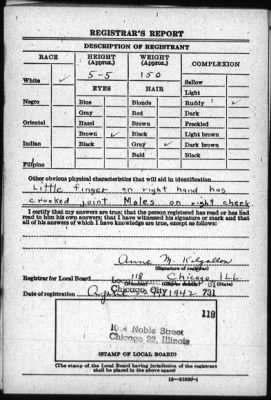 REGISTRAR'S REPORT
DESCRIPTION OF REGISTRANT
RACE HEIGHT (Approx.) WEIGHT (Approx.) COMPLEXION
White ✓ 5-5 150 Sallow
EYES HAIR Light
Negro Blue Blonde Ruddy ✓
Gray Red Dark
Oriental Hazel Brown Freckled
Brown ✓ Black Light brown
Indian Black Gray ✓ Dark brown
Bald Black
Filipino
Other obvious physical characteristics that will aid in identification
Little finger on right hand has
crooked joint Moles on right cheek
I certify that my answers are true; that the person registered has read or has had
read to him his own answers; that I have witnessed his signature or mark and that
all of his answers of which I have knowledge are true, except as follows:
Anne M.
(Signature of registrar)
Registrar for Local Board 118 Chicago Ill
(Number) (City or county) (State)
Chicago City
Date of registration April 1942 731
118
Noble Street
Chicago 22, Illinois
(STAMP OF LOCAL BOARD)
(The stamp of the Local Board having jurisdiction of the registrant
shall be placed in the above space)